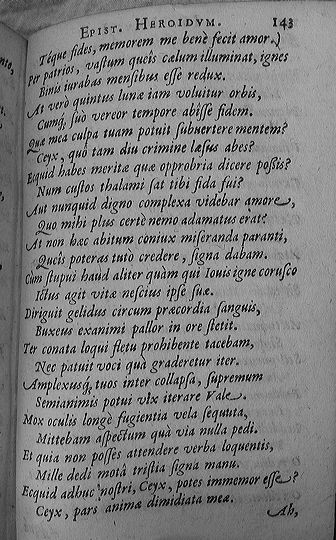 EPIST. HEROIDVM. 143
Téque fides, memorem me benè fecit amor.)
Per patrios, vastum queîs cælum illuminat, ignes
Binis iurabas mensibus esse redux.
At verò quintus lunæ iam voluitur orbis,
Cumq́, suò vereor tempore abisse fidem.
Quæ mea culpa tuam potuit subuertere mentem?
Ceyx, quò tam diu crimine læsus abes?
Ecquid habes meritæ quæ opprobria dicere possis?
Num custos thalami sat tibi fida fui?
Aut nunquid digno complexa videbar amore,
Quo mihi plus certè nemo adamatus erat?
At non hæc abitum coniux miseranda paranti,
Queîs poteras tutò credere, signa dabam.
Cùm stupui haud aliter quàm qui Iouis igne corusco
Ictus agit vitæ nescius ipse suæ.
Diriguit gelidus circum præcordia sanguis,
Buxeus exanimi pallor in ore stetit.
Ter conata loqui fletu prohibente tacebam,
Nec patuit voci quà graderetur iter.
Amplexusq́, tuos inter collapsa, supremum
Semianimis potui vix iterare Vale.
Mox oculis longè fugientia vela sequuta,
Mittebam aspectum quà via nulla pedi.
Et quia non posses attendere verba loquentis,
Mille dedi motâ tristia signa manu.
Ecquid adhuc nostri, Ceyx, potes immemor esse?
Ceyx, pars animæ dimidiata meæ.
Ah,